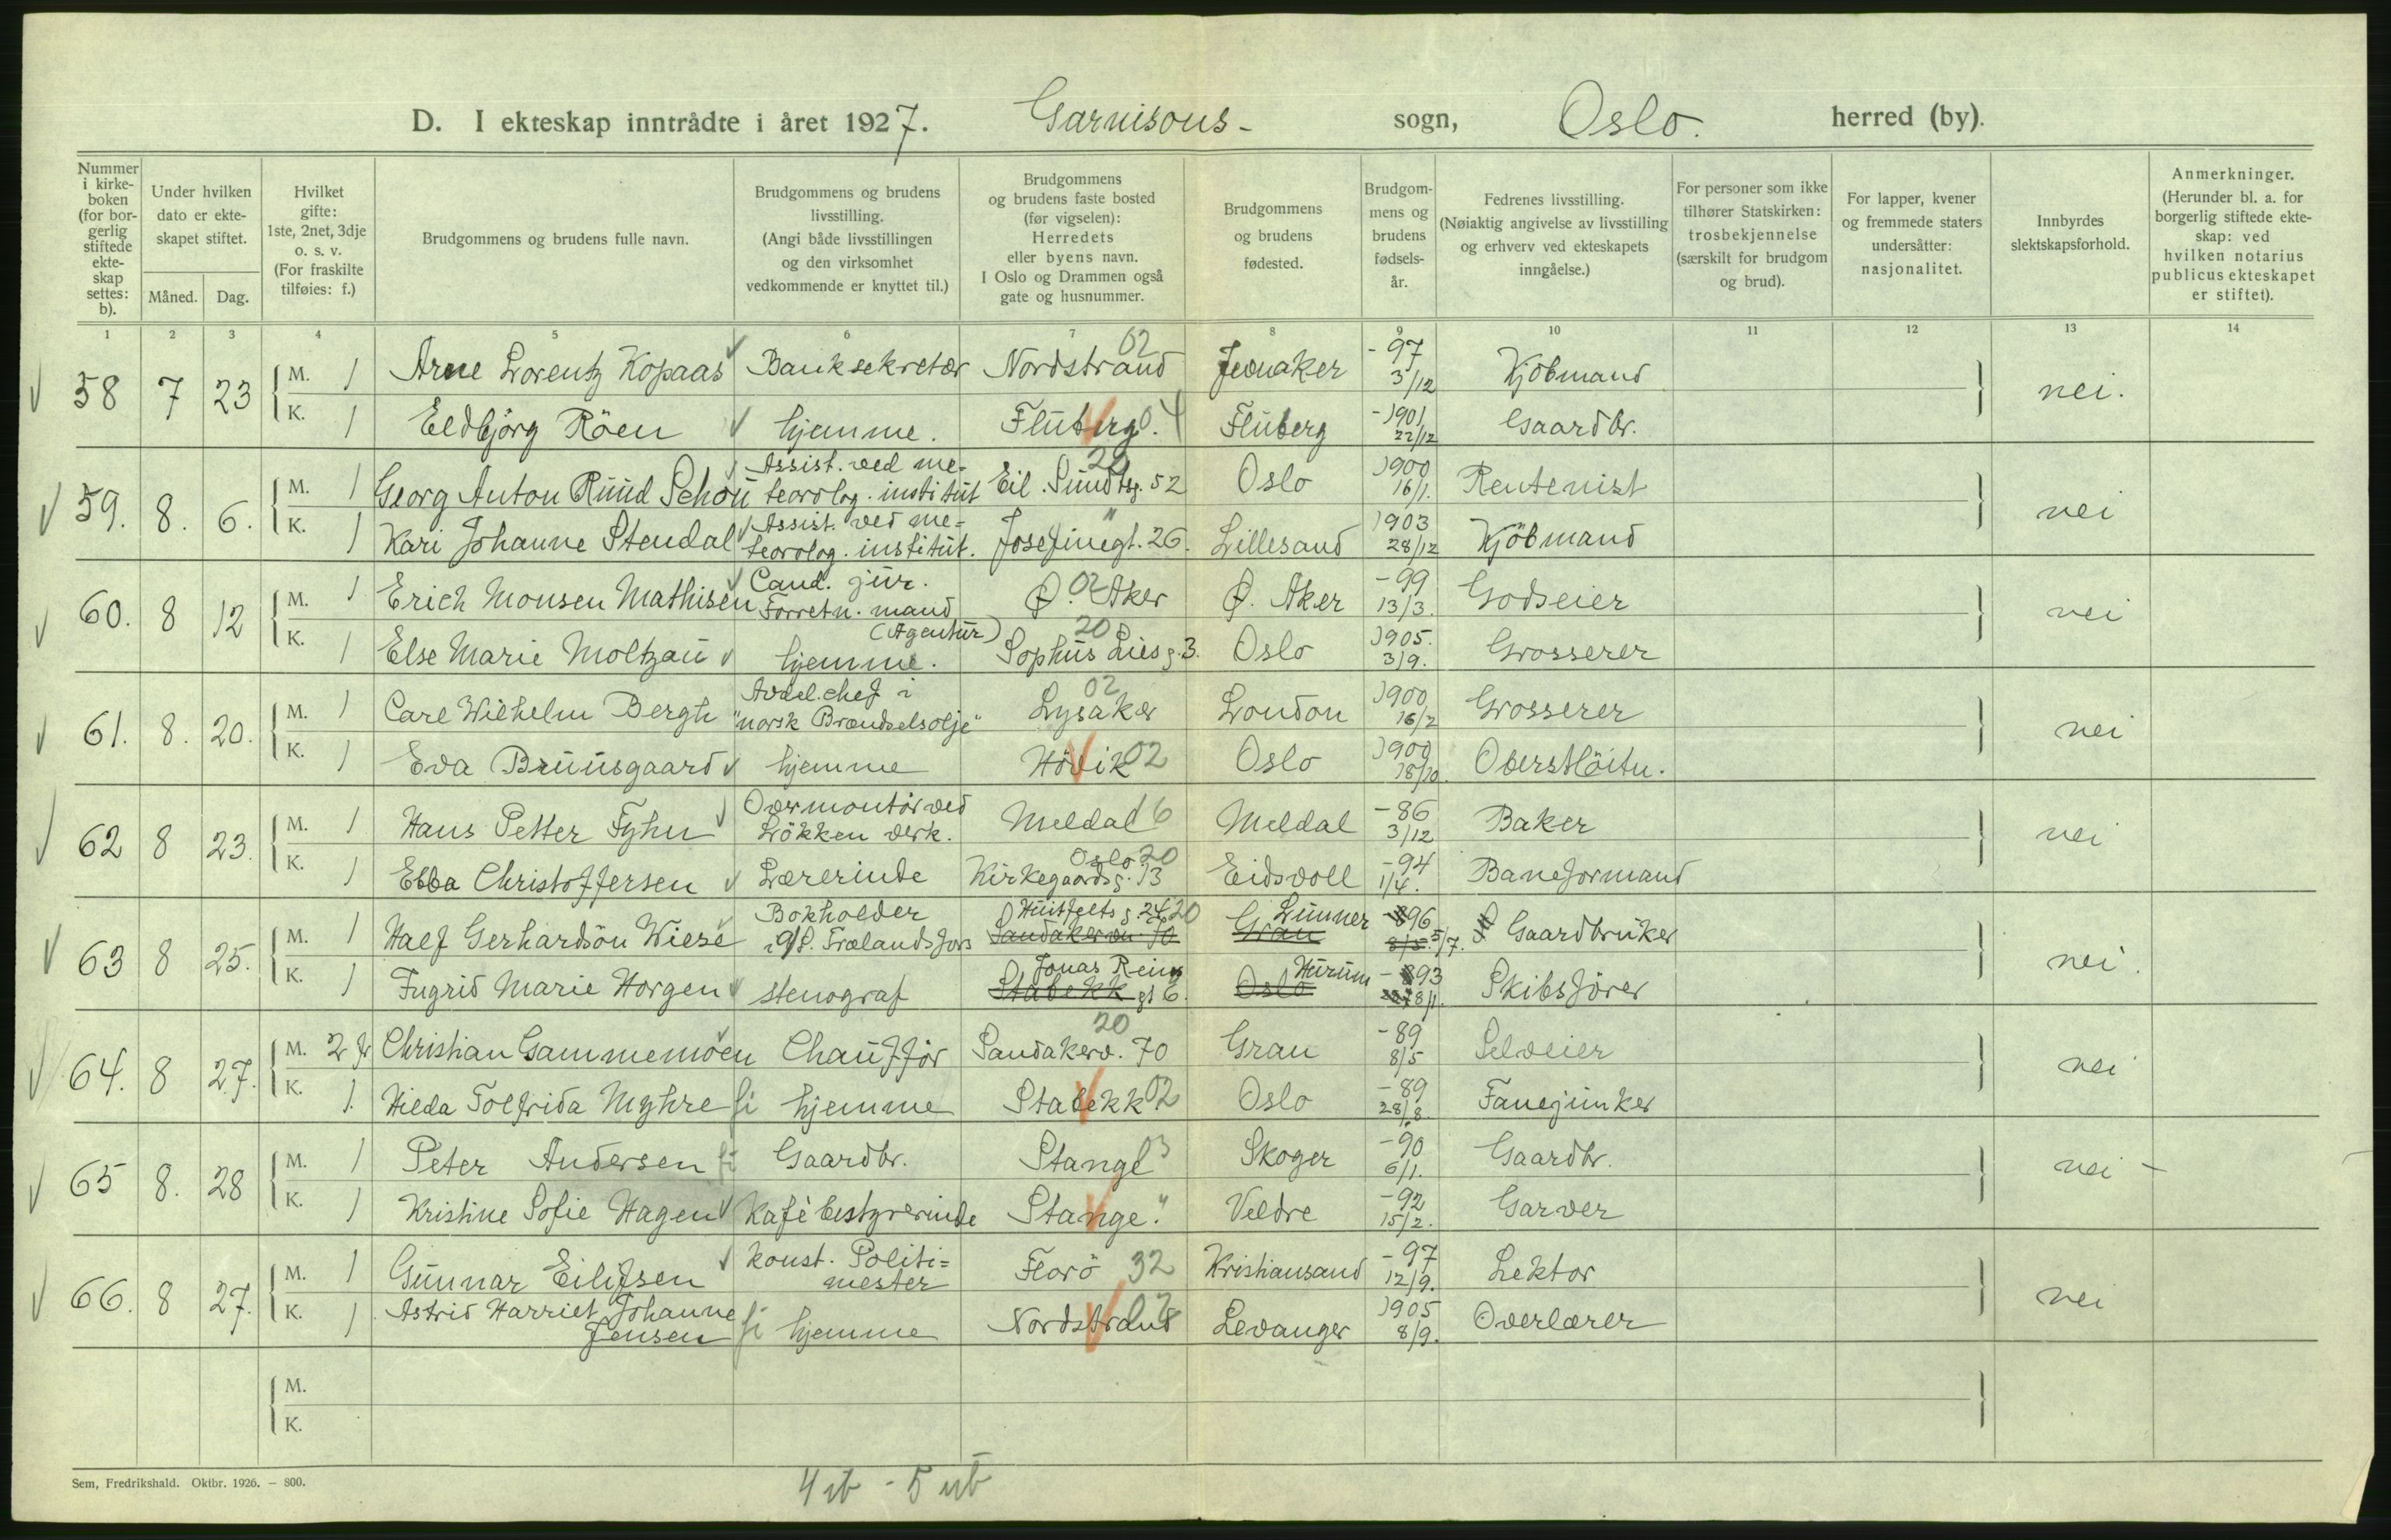 D. I ekteskap inntrådte i året 1927. Garnisons- sogn, Oslo. herred (by).
Nummer i kirke-boken (for bor-gerlig stiftede ekte-skap settes: b).
Under hvilken dato er ekte-skapet stiftet.
Måned. Dag.
Hvilket gifte: 1ste, 2net, 3dje o. s. v. (For fraskilte tilføies: f.)
Brudgommens og brudens fulle navn.
Brudgommens og brudens livsstilling. (Angi både livsstillingen og den virksomhet vedkommende er knyttet til.)
Brudgommens og brudens faste bosted (før vigselen): Herredets eller byens navn. I Oslo og Drammen også gate og husnummer.
Brudgommens og brudens fødested.
Brudgom-mens og brudens fødsels-år.
Fedrenes livsstilling. (Nøiaktig angivelse av livsstilling og erhverv ved ekteskapets inngåelse.)
For personer som ikke tilhører Statskirken: trosbekjennelse (særskilt for brudgom og brud).
For lapper, kvener og fremmede staters undersåtter: nasjonalitet.
Innbyrdes slektskapsforhold.
Anmerkninger. (Herunder bl. a. for borgerlig stiftede ekte-skap: ved hvilken notarius publicus ekteskapet er stiftet).
1 2 3 4 5 6 7 8 9 10 11 12 13 14
58 7 23 M. 1 Arne Lorentz Kopaas Banksekretær Nordstrand 02 Jevnaker -97 3/12 Kjöbmand nei.
K. 1 Eldbjörg Röen hjemme. Fluberg. 04 Fluberg -1901 22/12 Gaardbr.
59. 8. 6. M. 1 Georg Anton Ruud Schou Assist. ved me-teorolog. institut Eil. Sundtsg. 52 20 Oslo 1900 16/1. Rentenist nei
K. 1 Kari Johanne Stendal Assist. ved me=teorolog. institut. Josefinegt. 26. " Lillesand 1903 28/12 Kjöbmand
60. 8 12 M. 1 Erich Monsen Mathisen Cand. jur. Forretn. mand (Agentur) Ø. Aker 02 Ø. Aker -99 13/3. Godseier nei
K. 1 Else Marie Moltzau hjemme. Sophus Lies g. 3. 20 Oslo 1905. 3/9. Grosserer
61. 8. 20. M. 1 Carl Wilhelm Bergh Avdel.chef i "norsk Brændselsolje" Lysaker 02 London 1900 16/2 Grosserer nei
K. 1 Eva Bruusgaard hjemme Hövik 02 Oslo 1900 18/10. Oberstlöitn.
62 8 23. M. 1 Hans Petter Fyhn Overmontör ved Lökken verk. Meldal 16 Meldal -86 3/12 Baker nei
K. 1 Ebba Christoffersen Lærerinde Oslo 20 Kirkegaardsg. 13 Eidsvoll -94 1/4. Baneformand
63 8 25. M. 1 Half Gerhardsön Wiese Bokholder i A/S. Frælandsfors Huitfelts g. 24 20 Sandakervn. 70 Lunner Gran -896 8/5. 5/7. Gaardbruker nei.
K. 1 Ingrid Marie Horgen stenograf Jonas Reins gt 6. Stabekk Hurum Oslo -893 8/1. Skibsförer
64. 8 27. M. 2 f Christian Gammemoen Chauffør Sandakerv. 70 20 Gran -89 8/5 Selveier nei
K. 1. Hilda Tolfrida Myhre hjemme Stabekk 02 Oslo -89 28/8. Fanejunker
65 8. 28 M. 1 Peter Andersen Gaardbr. Stange 03 Skoger -90 6/1. Gaardbr. nei -
K. 1 Kristine Sofie Hagen Kafébestyrerinde Stange. " Veldre -92 15/2. Garver
66. 8 27. M. 1 Gunnar Eilifsen konst. Politi=mester Florö 32 Kristiansand -97 12/9. Lektor nei
K. 1 Astrid Harriet Johanne Jensen hjemme Nordstrand 02 Levanger 1905 8/9. Overlærer
M.
K.
Sem, Fredrikshald. Oktbr. 1926. — 800.
4 ib - 5 ub